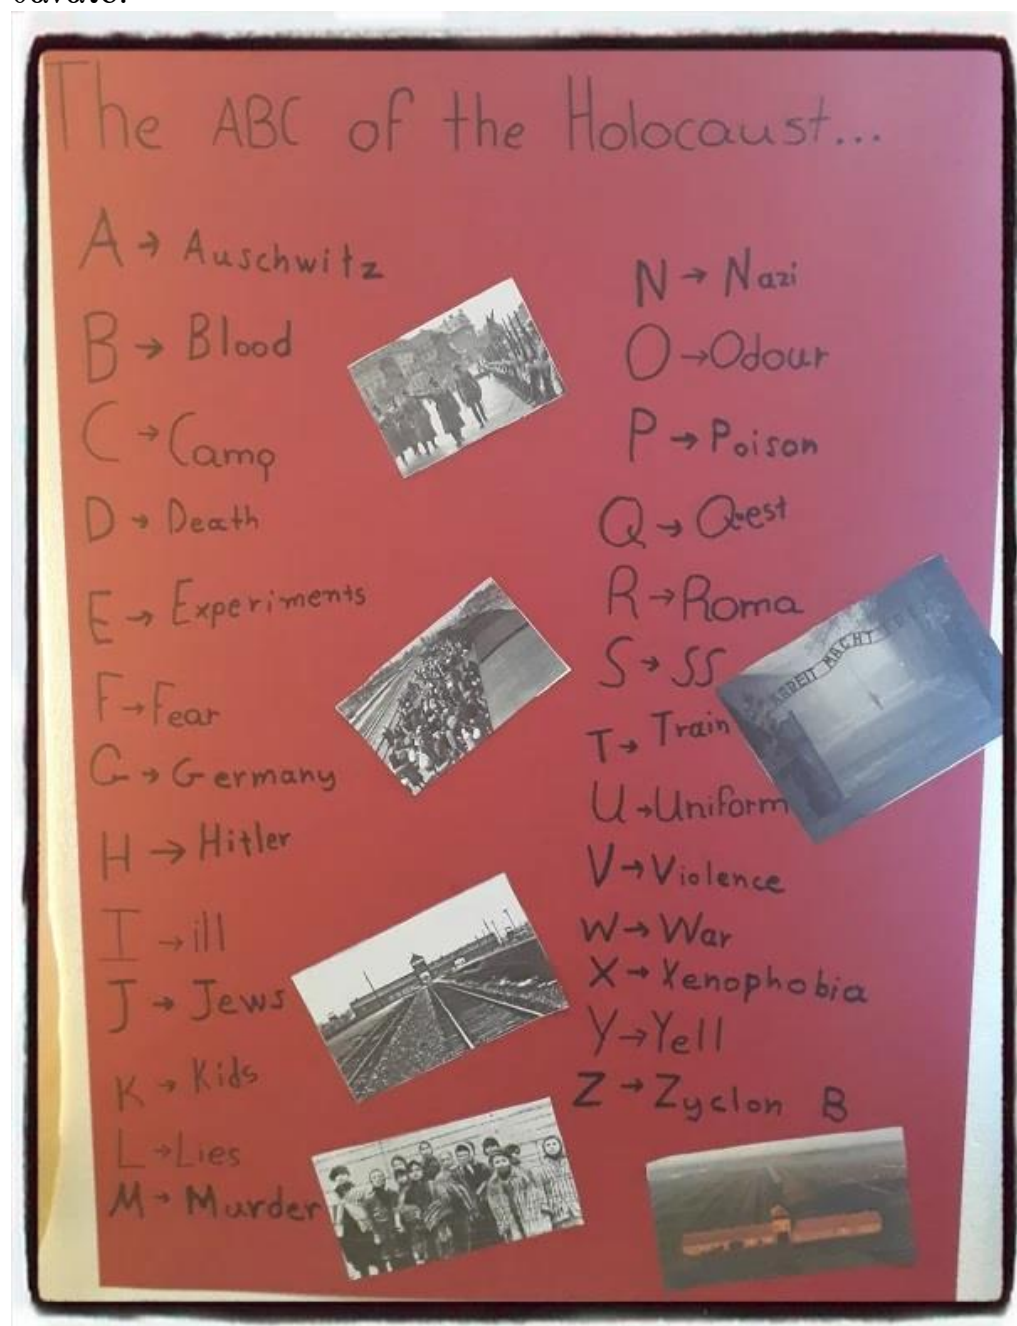 The ABC of the Holocaust...
A → Auschwitz
B → Blood
C → Camp
D → Death
E → Experiments
F → Fear
G → Germany
H → Hitler
I → ill
J → Jews
K → Kids
L → Lies
M → Murder
N → Nazi
O → Odour
P → Poison
Q → Quest
R → Roma
S → SS
T → Train
U → Uniform
V → Violence
W → War
X → Xenophobia
Y → Yell
Z → Zyclon B
ARBEIT MACHT